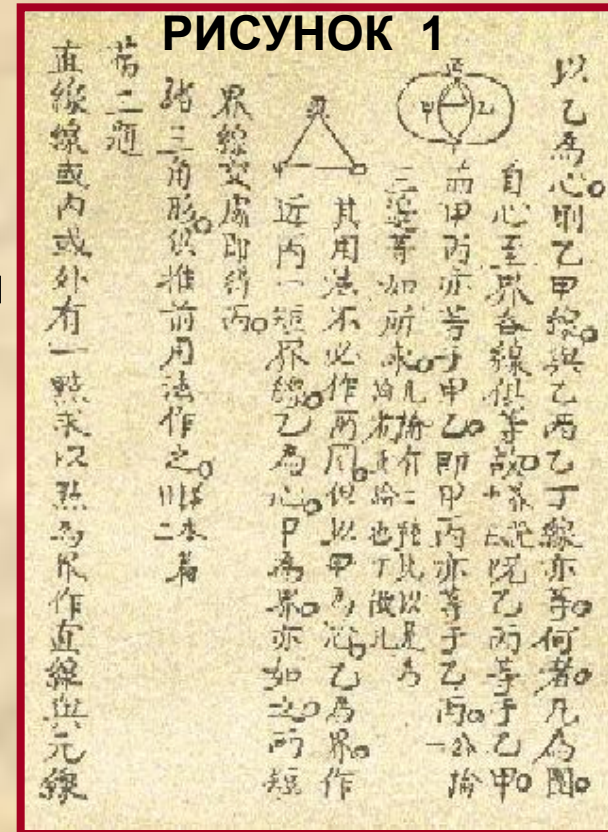 РИСУНОК 1
以乙為心。則乙甲線與乙丙乙丁線亦等。何者。凡為圜。
自心至界各線俱等故。界說十五既乙丙等于乙甲。
而甲丙亦等于甲乙。即甲丙亦等于乙丙。公論一
三邊等如所求。凡論有二種此以是為論者正論也下倣此
其用法不必作兩圜。但以甲為心。乙為界。作
近丙一短界線。乙為心。甲為界。亦如之。兩短
界線交處即得丙。
諸三角形。俱推前用法作之。詳本篇
第二題
直線線或內或外有一點求以點為界作直線與元線
丙
甲
乙
丁